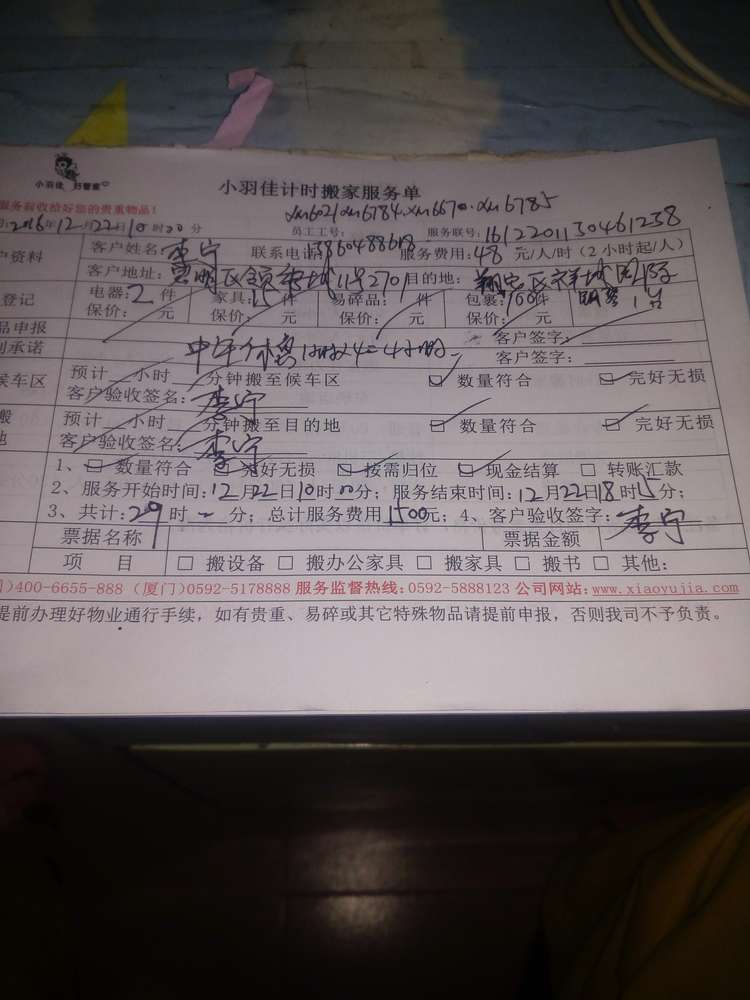 小羽佳 好管家
小羽佳计时搬家服务单
服务前收拾好您的贵重物品!
xm6021 xm6784.xm6670.xm6785
2016年12月22日10时00分 员工工号: 服务联号:1612201130461238
户资料 客户姓名:李宁 联系电话13860488618 服务费用:48元/人/时(2小时起/人)
客户地址: 区 11号2701目的地: 翔安区
登记 电器:2件 家具:15件 易碎品: 件 包裹:100件 钢琴1台
保价: 元 保价: 元 保价: 元 保价: 元
品申报 客户签字:
承诺 中午休息1小时x4=4小时 客户签字:
候车区 预计 小时 分钟搬至候车区 ☑数量符合 ☑完好无损
客户验收签名:李宁
搬 预计 小时 分钟搬至目的地 ☑数量符合 ☑完好无损
地 客户验收签名:李宁
1、☑数量符合 ☑完好无损 ☑按需归位 ☑现金结算 □转账汇款
2、服务开始时间:12月22日10时00分;服务结束时间:12月22日18时15分;
3、共计:29时-分;总计服务费用1500元;4、客户验收签字:李宁
票据名称 票据金额
项 目 □搬设备 □搬办公家具 □搬家具 □搬书 □其他:
)400-6655-888 (厦门)0592-5178888 服务监督热线:0592-5888123 公司网站:www.xiaoyujia.com
提前办理好物业通行手续,如有贵重、易碎或其它特殊物品请提前申报,否则我司不予负责。